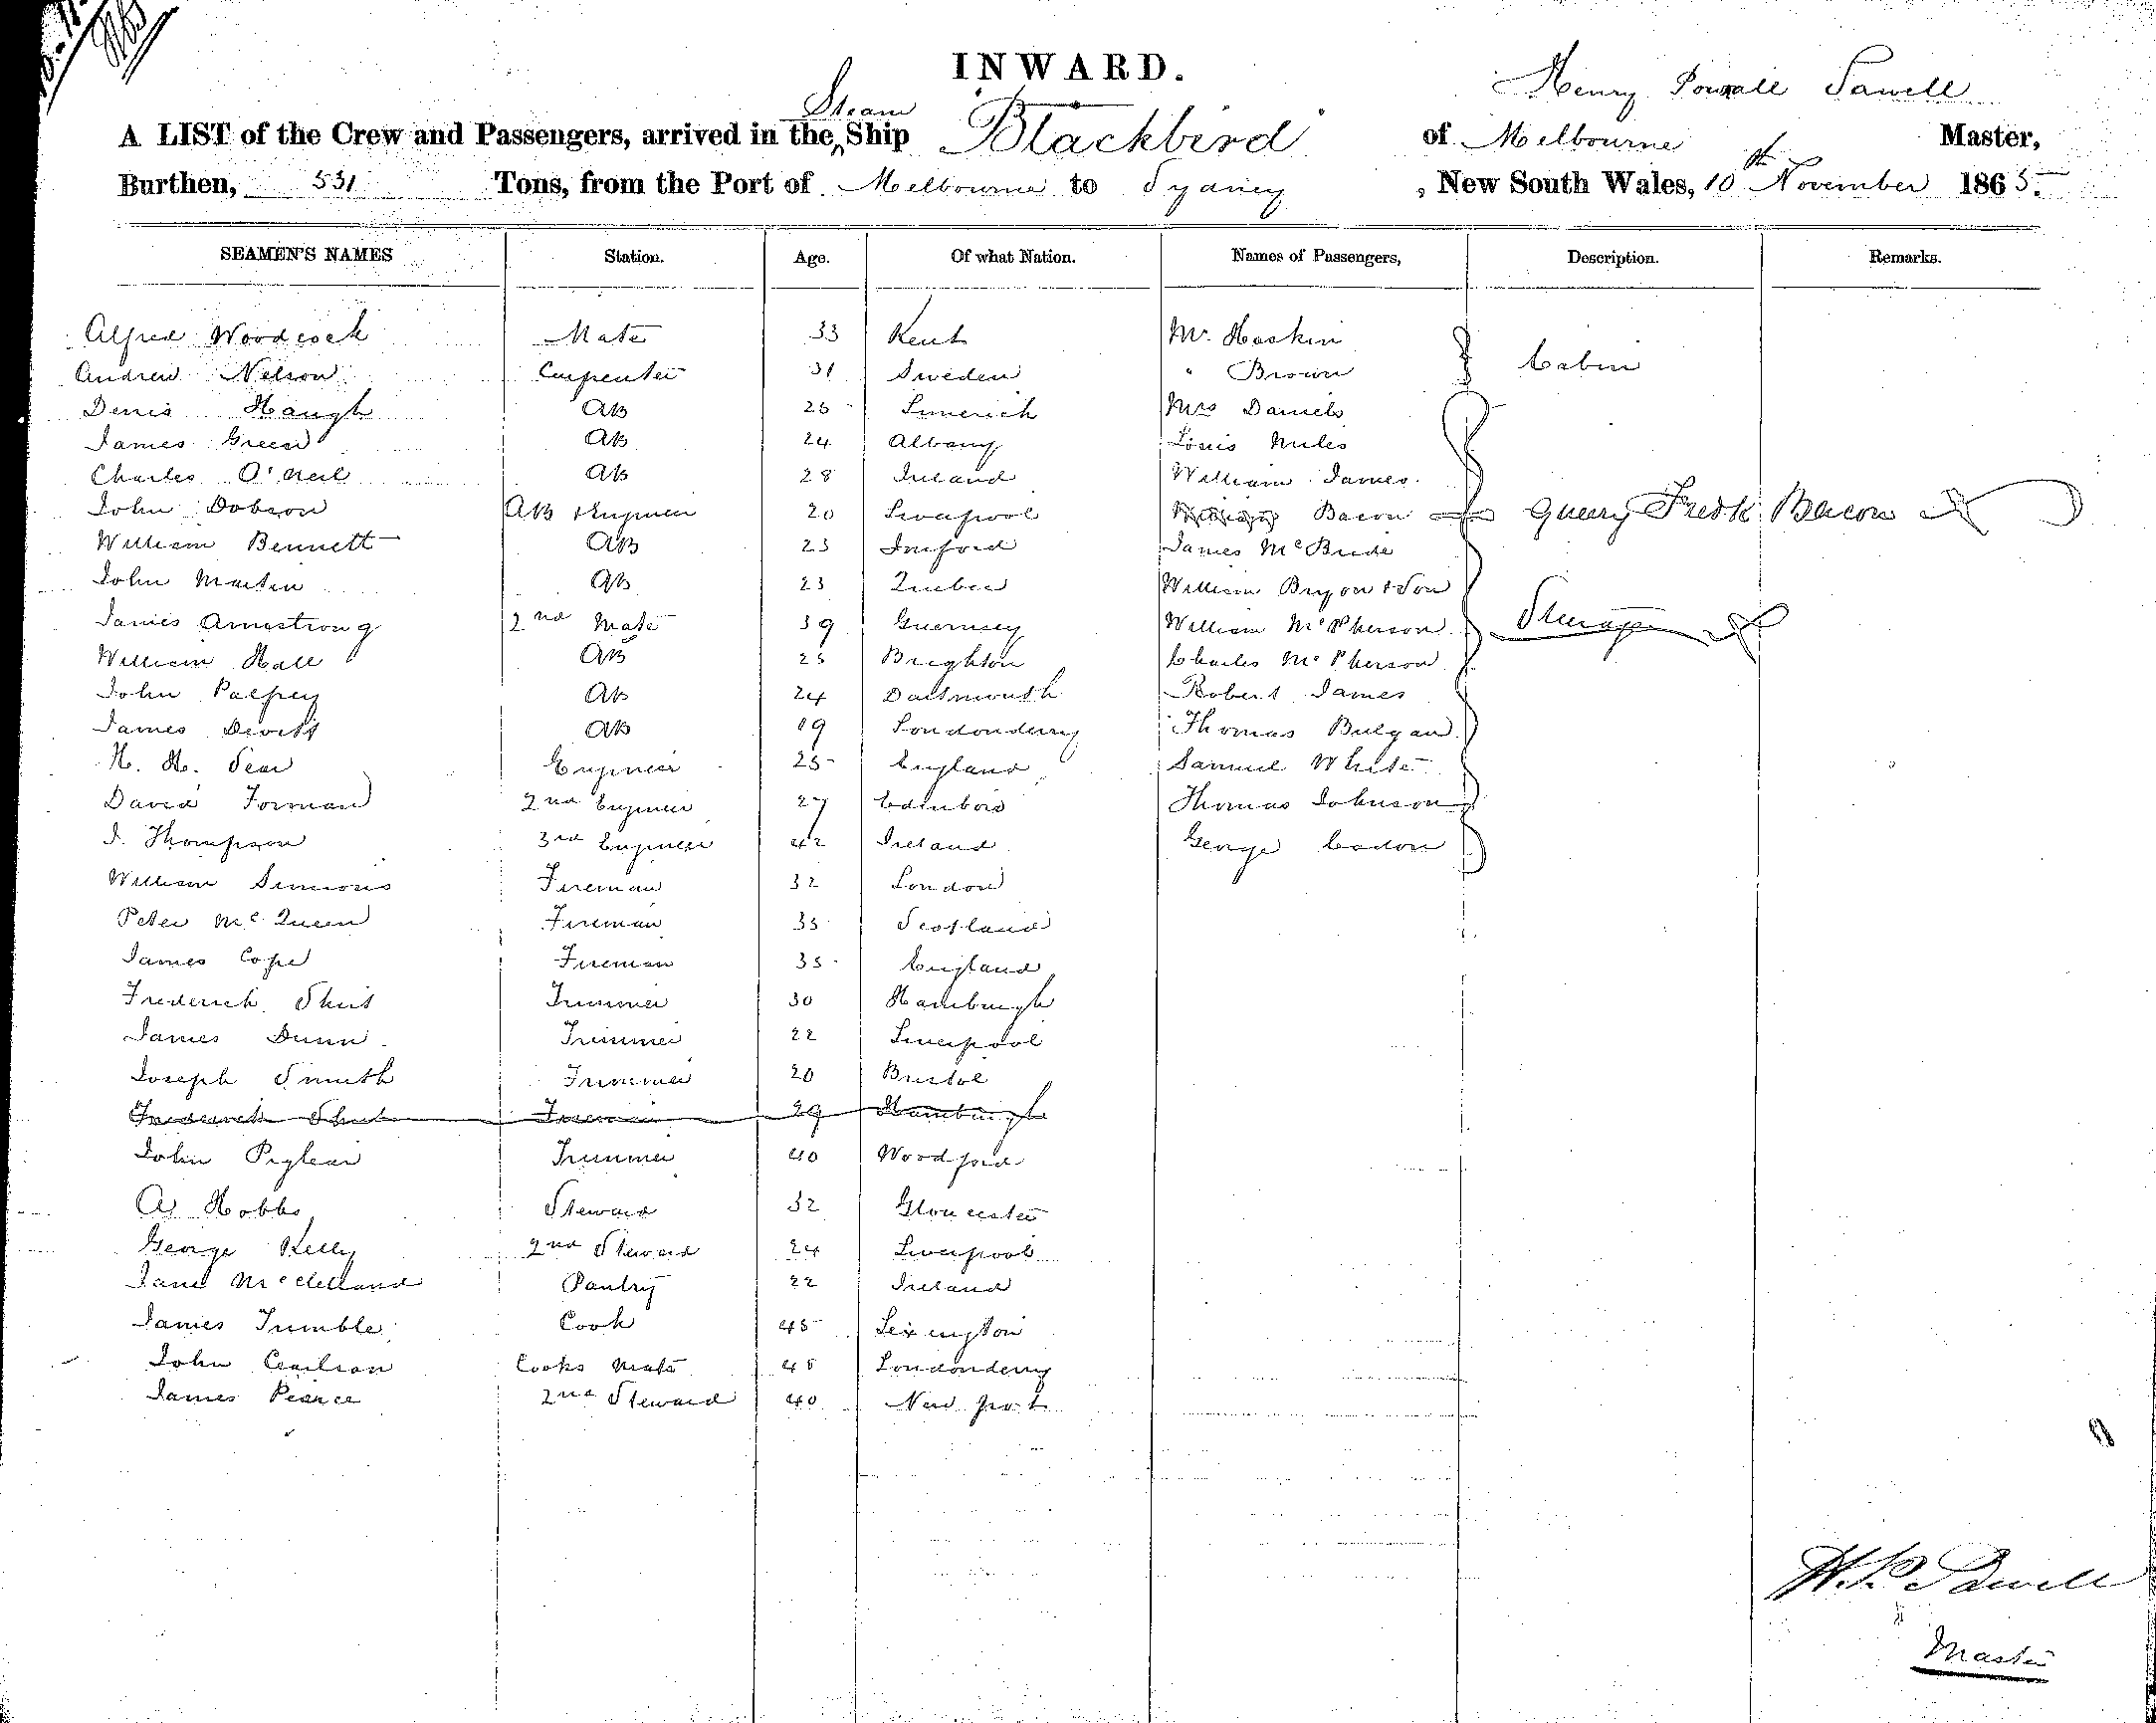 INWARD.
Henry Sawell
Steam
A LIST of the Crew and Passengers, arrived in the Ship Blackbird of Melbourne Master,
Burthen, 531 Tons, from the Port of Melbourne to Sydney, New South Wales, 10th November 1865.
SEAMEN'S NAMES Station. Age. Of what Nation. Names of Passengers, Description. Remarks.
Alfred Woodcock Mate 33 Kent Mr. Hoskin
Cabin
Andrew Nelson Carpenter 31 Sweden " Brown
Denis Haugh AB 25 Limerick Mrs Daniels
James Green AB 24 Albany Louis
Charles O'Neil AB 28 Ireland William James
John Dobson AB 20 Liverpool Bacon Query Fredk Bacon
William Bennett AB 23 James McBride
John Martin AB 23 Quebec William Bryon & Son
James Armstrong 2nd Mate 39 Guernsey William McPherson Steerage
William Hall AB 25 Brighton Charles McPherson
John Palfrey AB 24 Dartmouth Robert James
James Devitt AB 19 Londonderry Thomas
H. H. Engineer 25 England Samuel White
David Forman 2nd Engineer 27 Edinboro Thomas Johnson
J. Thompson 3rd Engineer 42 Ireland George
William Simmons Fireman 32 London
Peter McQueen Fireman 35 Scotland
James Cope Fireman 35 England
Frederick Trimmer 30 Hamburgh
James Dunn Trimmer 22 Liverpool
Joseph Smith Trimmer 20 Bristol
Frederick Fireman 29 Hamburgh
John Trimmer 40 Woodford
A Hobbs Steward 32 Gloucester
George Kelly 2nd Steward 24 Liverpool
Jane McClelland Pantry 22 Ireland
James Trimble Cook 45 Lexington
John Cooks Mate 45 Londonderry
James Pearce 2nd Steward 40 New port
H. P. Sawell
Master